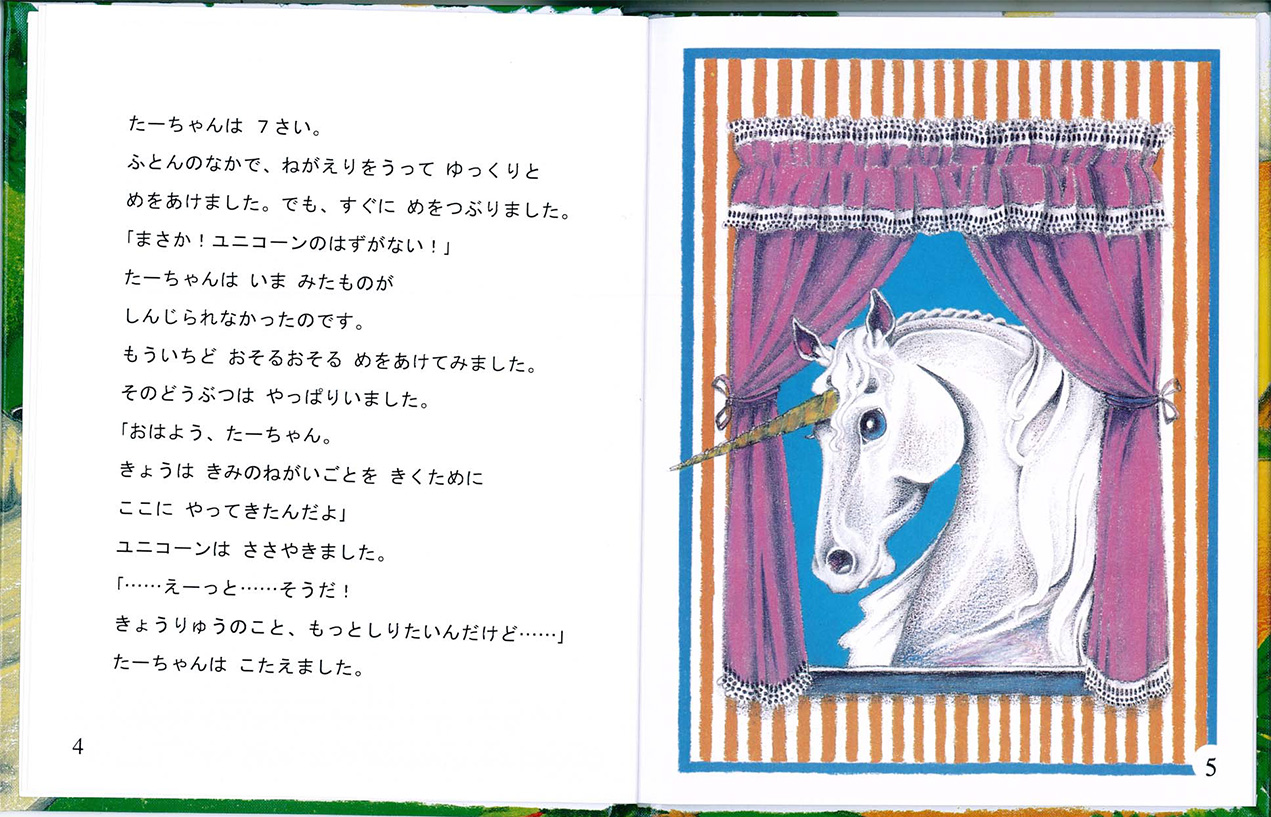 たーちゃんは 7さい。
ふとんのなかで、ねがえりをうって ゆっくりと
めをあけました。でも、すぐに めをつぶりました。
「まさか！ユニコーンのはずがない！」
たーちゃんは いま みたものが
しんじられなかったのです。
もういちど おそるおそる めをあけてみました。
そのどうぶつは やっぱりいました。
「おはよう、たーちゃん。
きょうは きみのねがいごとを きくために
ここに やってきたんだよ」
ユニコーンは ささやきました。
「……えーっと……そうだ！
きょうりゅうのこと、もっとしりたいんだけど……」
たーちゃんは こたえました。
4
5